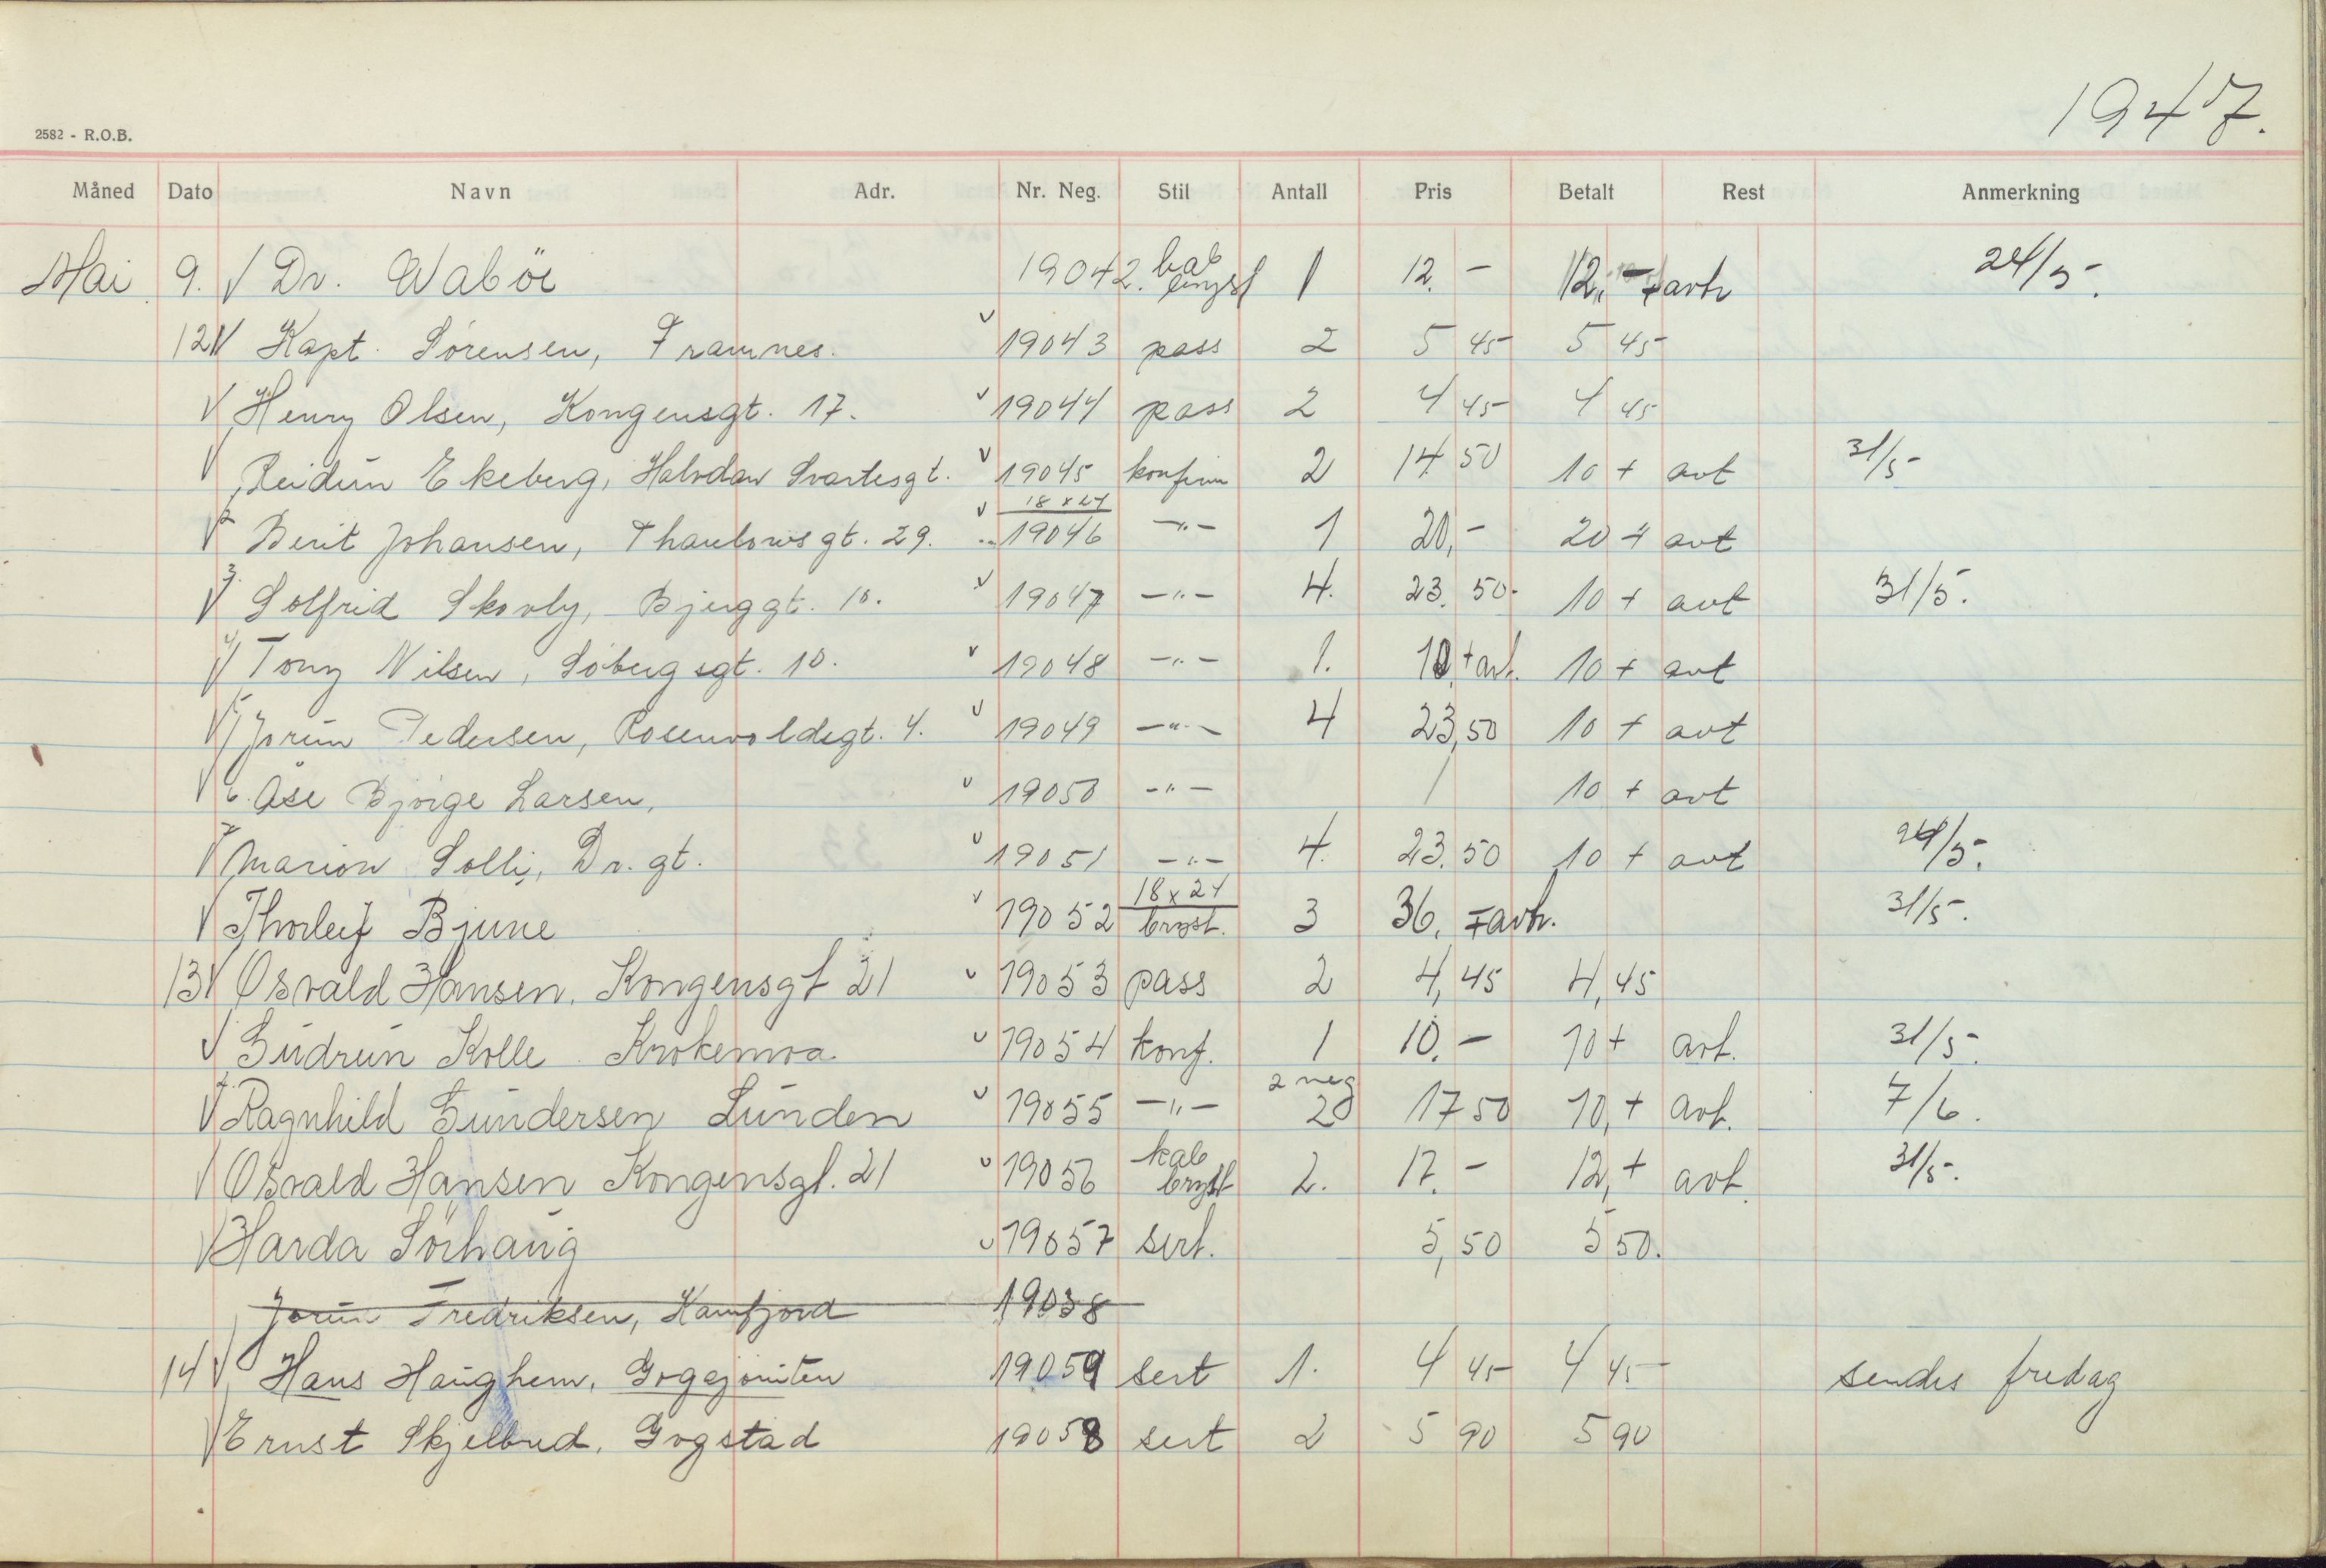 1947.
2582 - R.O.B.
Måned Dato Navn Adr. Nr. Neg. Stil Antall Pris Betalt Rest Anmerkning
Mai 9. √ Dr. Waböe 19042. kab bryst 1 12.- 12,- + avh 24/5-.
12 √ Kapt. Sørensen, Framnes. √ 19043 pass 2 5 45 5 45
√ Henry Olsen, Kongensgt. 17. √ 19044 pass 2 4 45 4 45
√ Reidun Ekeberg, Halvdan Svartesgt. √ 19045 konfirm 2 14 50 10 + avt 31/5-
√ 2 Berit Johansen, Thaulowsgt. 29. √ 18 x 24 19046 -"- 1 20,- 20 + avt
√ 3. Solfrid Skovly, Bjerggt. 10. √ 19047 -"- 4. 23. 50. 10 + avt 31/5.
√ 4) Tony Nilsen, Söbergsgt. 10. √ 19048 -"- 1. 10, + avt. 10 + avt
√ 5) Jorun Pedersen, Rosenvoldsgt. 4. √ 19049 -"- 4 23,50 10 + avt
√ 6. Åse Bjørge Larsen, √ 19050 -"- / 10 + avt
√ 7 Marion Solli, Dr. gt. √ 19051 -"- 4. 23.50 10 + avt 24/5.
√ Thorleif Bjune √ 19052 18 x 24 bryst. 3 36, + avh. 31/5-.
13 √ Osvald Hansen. Kongensgt 21 √ 19053 pass 2 4,45 4,45
√ Gudrun Kolle Krokemoa √ 19054 konf. 1 10.- 10 + avt. 31/5-.
√ Ragnhild Gundersen Lunden √ 19055 -"- 2 neg 2 17 50 10, + avt. 7/6.
√ Osvald Hansen Kongensgt. 21 √ 19056 kab bryst 2. 17.- 12, + avt. 31/5-.
√ Harda Sörhaug √ 19057 sert. 5,50 5 50.
Jorun Fredriksen, Kamfjord 19058
14 √ Hans Haughem, 19059 sert 1. 4 45 4 45 sendes fredag
√ Ernst Skjelbred, Gogstad 19058 sert 2 5 90 5 90